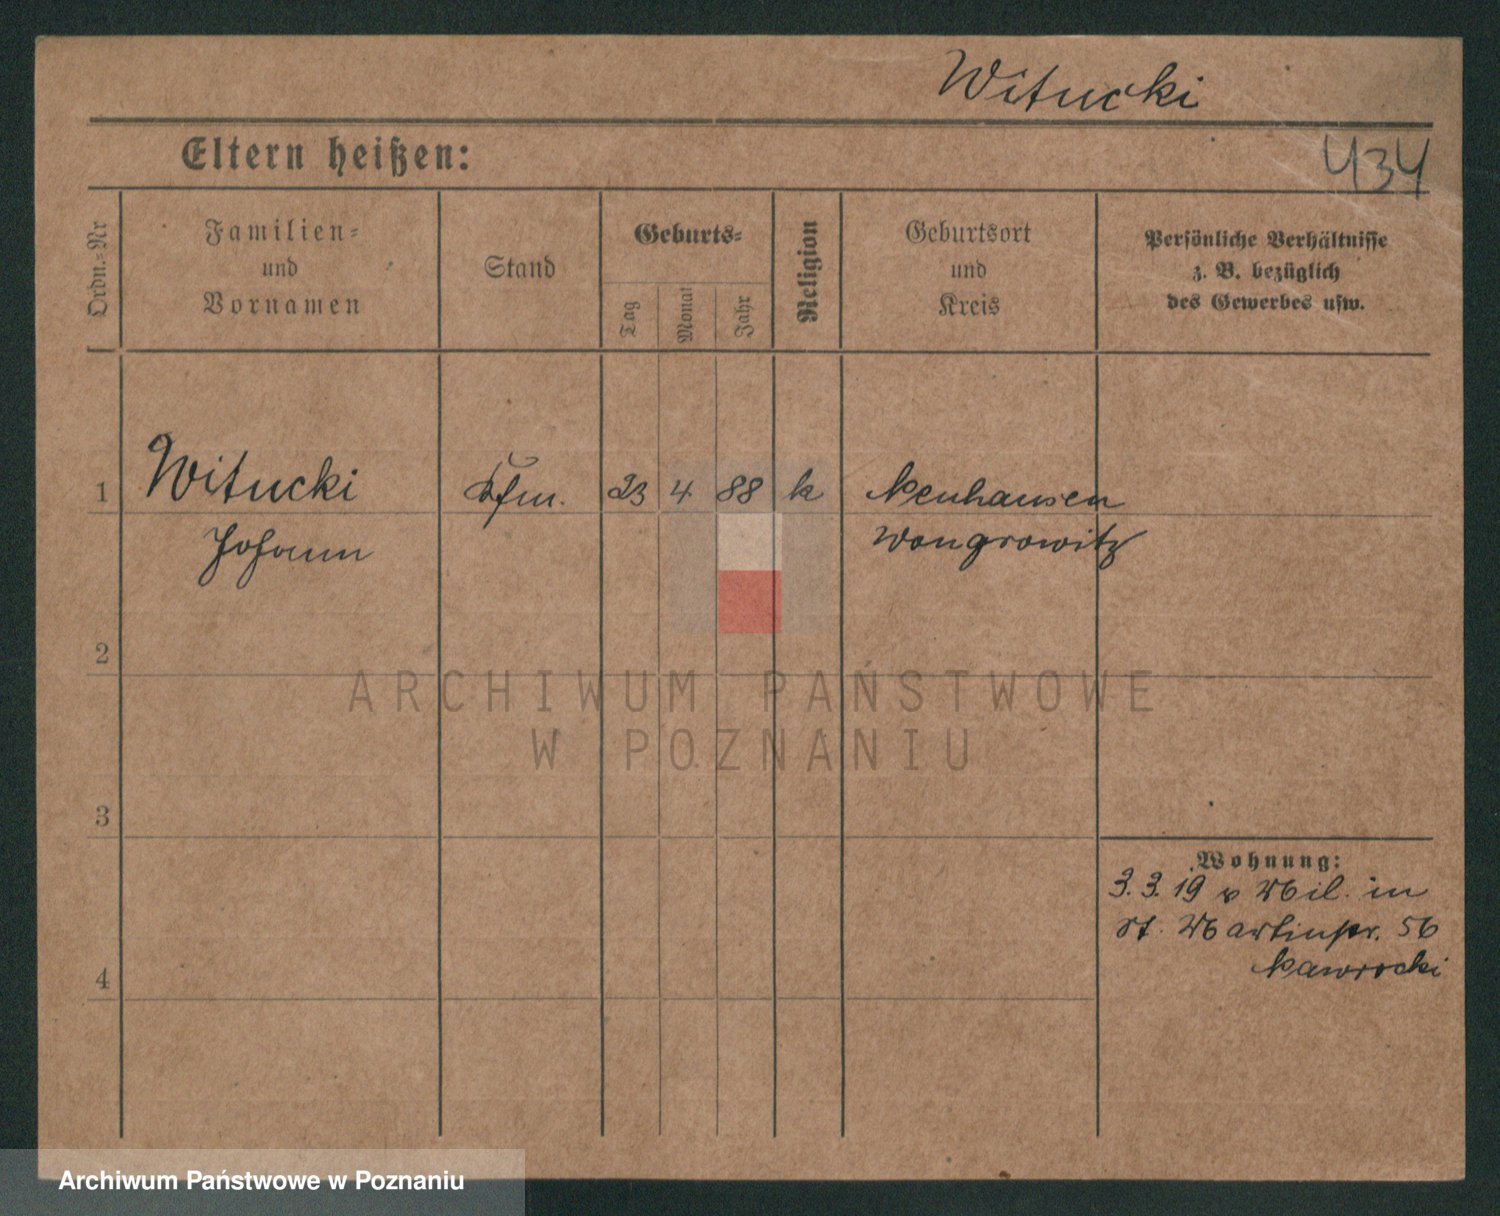 Witucki
Eltern heißen:
434
Ordn.-Nr
Familien-
und
Vornamen
Stand
Geburts-
Tag
Monat
Jahr
Religion
Geburtsort
und
Kreis
Persönliche Verhältnisse
z. B. bezüglich
des Gewerbes usw.
1 Witucki Kfm. 23 4 88 k Neuhausen
Johann Wongrowitz
2
3
4
Wohnung:
3.3.19 v Mil. in
St. Martinstr. 56
Nawrocki
ARCHIWUM PAŃSTWOWE
W POZNANIU
Archiwum Państwowe w Poznaniu